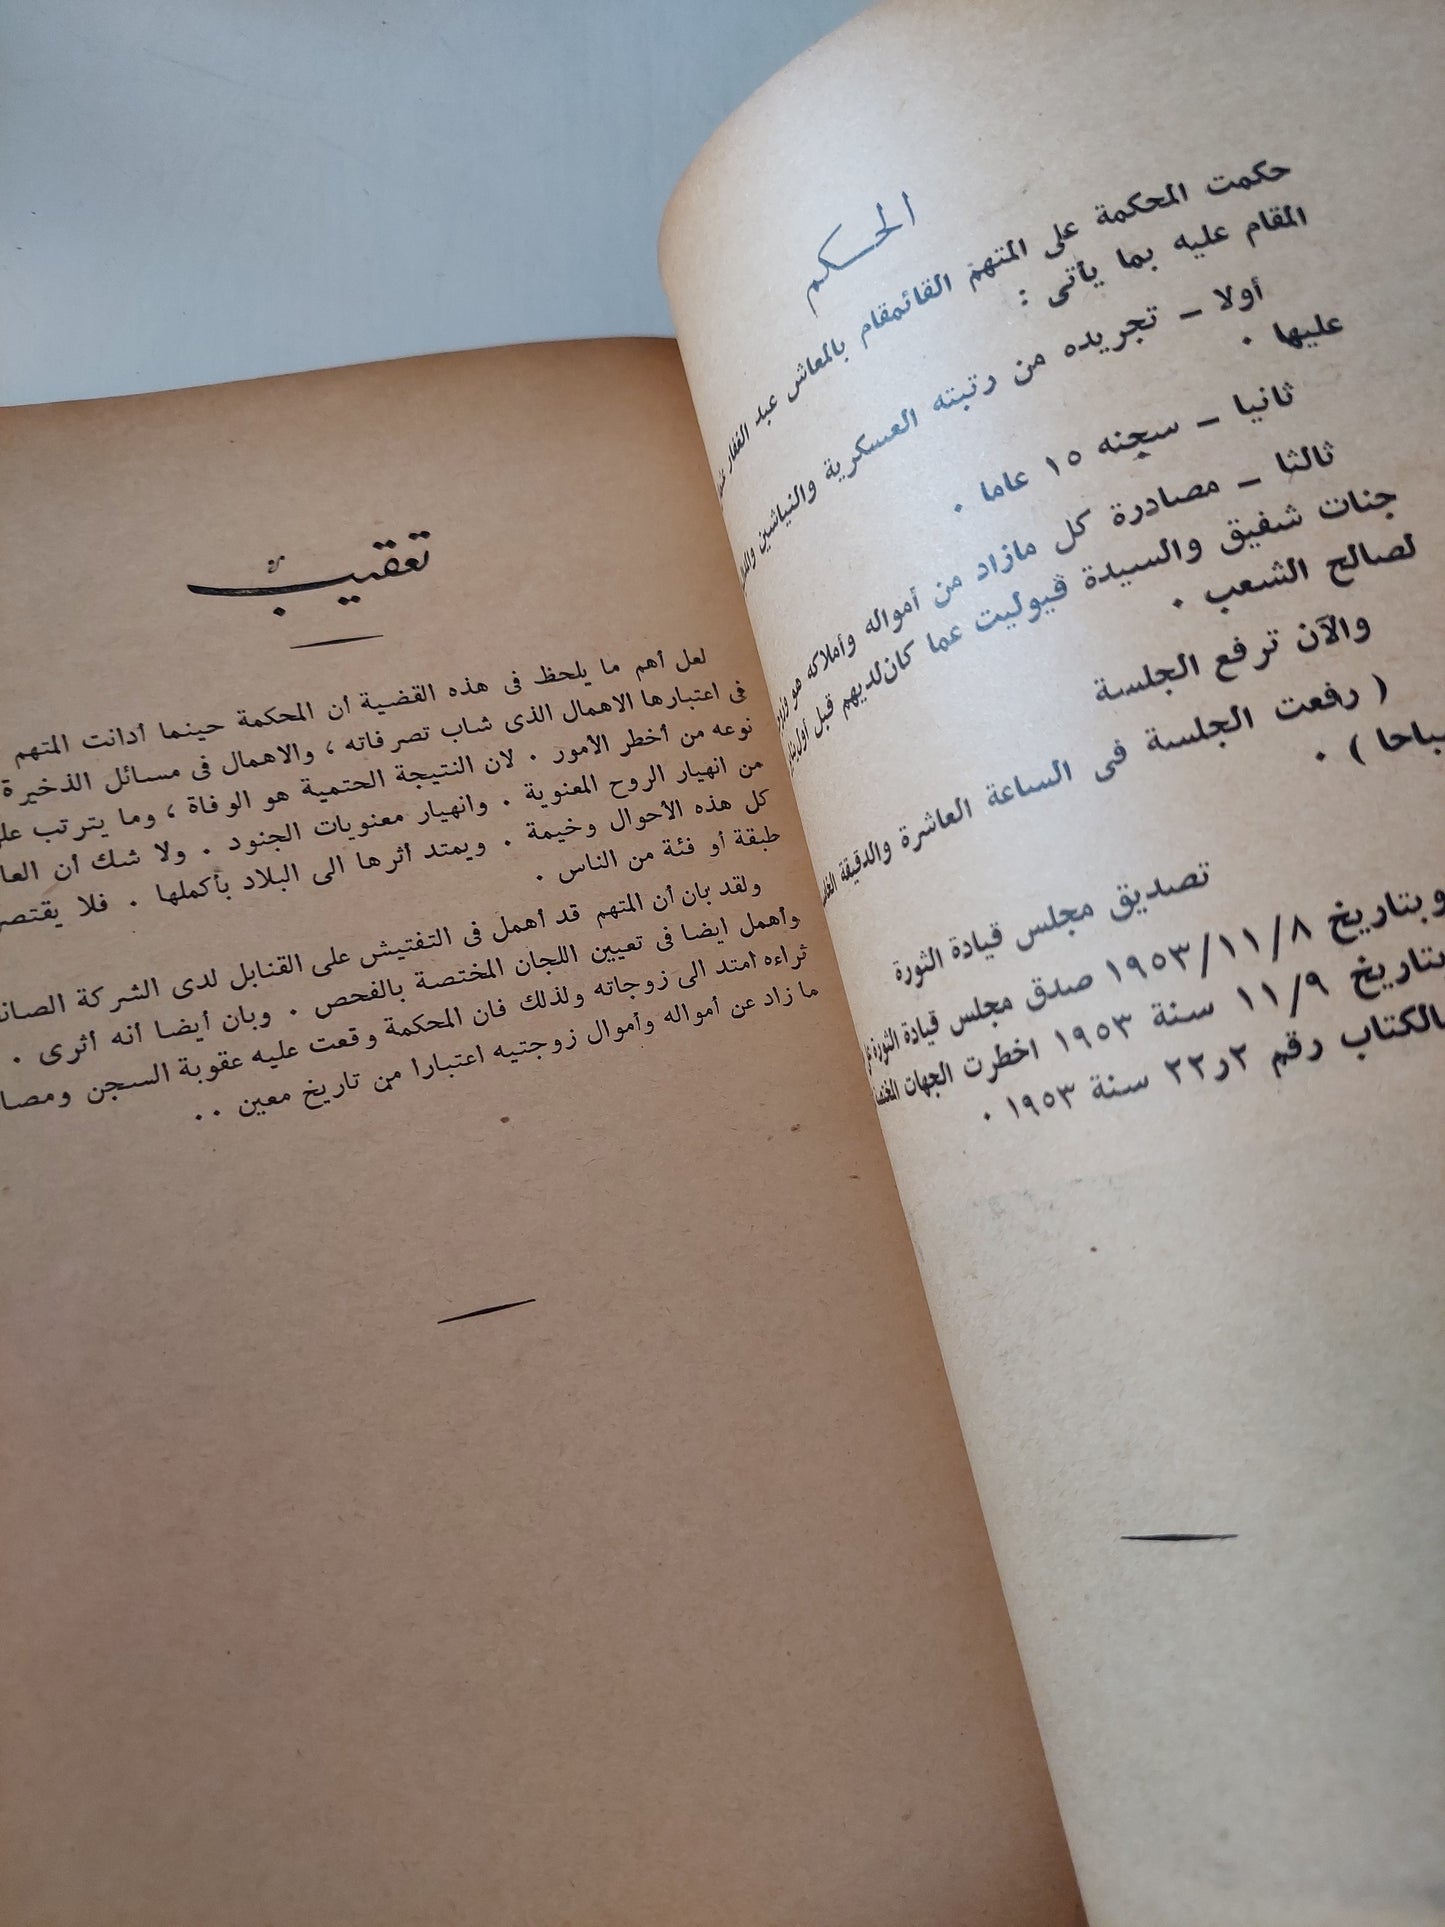 الحكم
حكمت المحكمة على المتهم القائمقام بالمعاش عبد الغفار
المقام عليه بما يأتى :
أولا – تجريده من رتبته العسكرية والنياشين
عليها .
ثانيا – سجنه ١٥ عاما .
ثالثا – مصادرة كل مازاد من أمواله وأملاكه هو
جنات شفيق والسيدة ڤيوليت عما كان لديهم قبل أول
لصالح الشعب .
والآن ترفع الجلسة
( رفعت الجلسة فى الساعة العاشرة والدقيقة
) .
تصديق مجلس قيادة الثورة
وبتاريخ ١٩٥٣/١١/٨ صدق مجلس قيادة الثورة
بتاريخ ١١/٩ سنة ١٩٥٣ اخطرت الجهات
بالكتاب رقم ٢ر٢٢ سنة ١٩٥٣ .
تعقيب
لعل أهم ما يلحظ فى هذه القضية أن المحكمة حينما أدانت المتهم
فى اعتبارها الاهمال الذى شاب تصرفاته ، والاهمال فى مسائل الذخيرة
نوعه من أخطر الأمور . لان النتيجة الحتمية هو الوفاة ، وما يترتب
من انهيار الروح المعنوية . وانهيار معنويات الجنود . ولا شك أن
كل هذه الأحوال وخيمة . ويمتد أثرها الى البلاد بأكملها . فلا يقتصر
طبقة أو فئة من الناس .
ولقد بان أن المتهم قد أهمل فى التفتيش على القنابل لدى الشركة
وأهمل ايضا فى تعيين اللجان المختصة بالفحص . وبان أيضا أنه أثرى .
ثراءه امتد الى زوجاته ولذلك فان المحكمة وقعت عليه عقوبة السجن
ما زاد عن أمواله وأموال زوجتيه اعتبارا من تاريخ معين . .